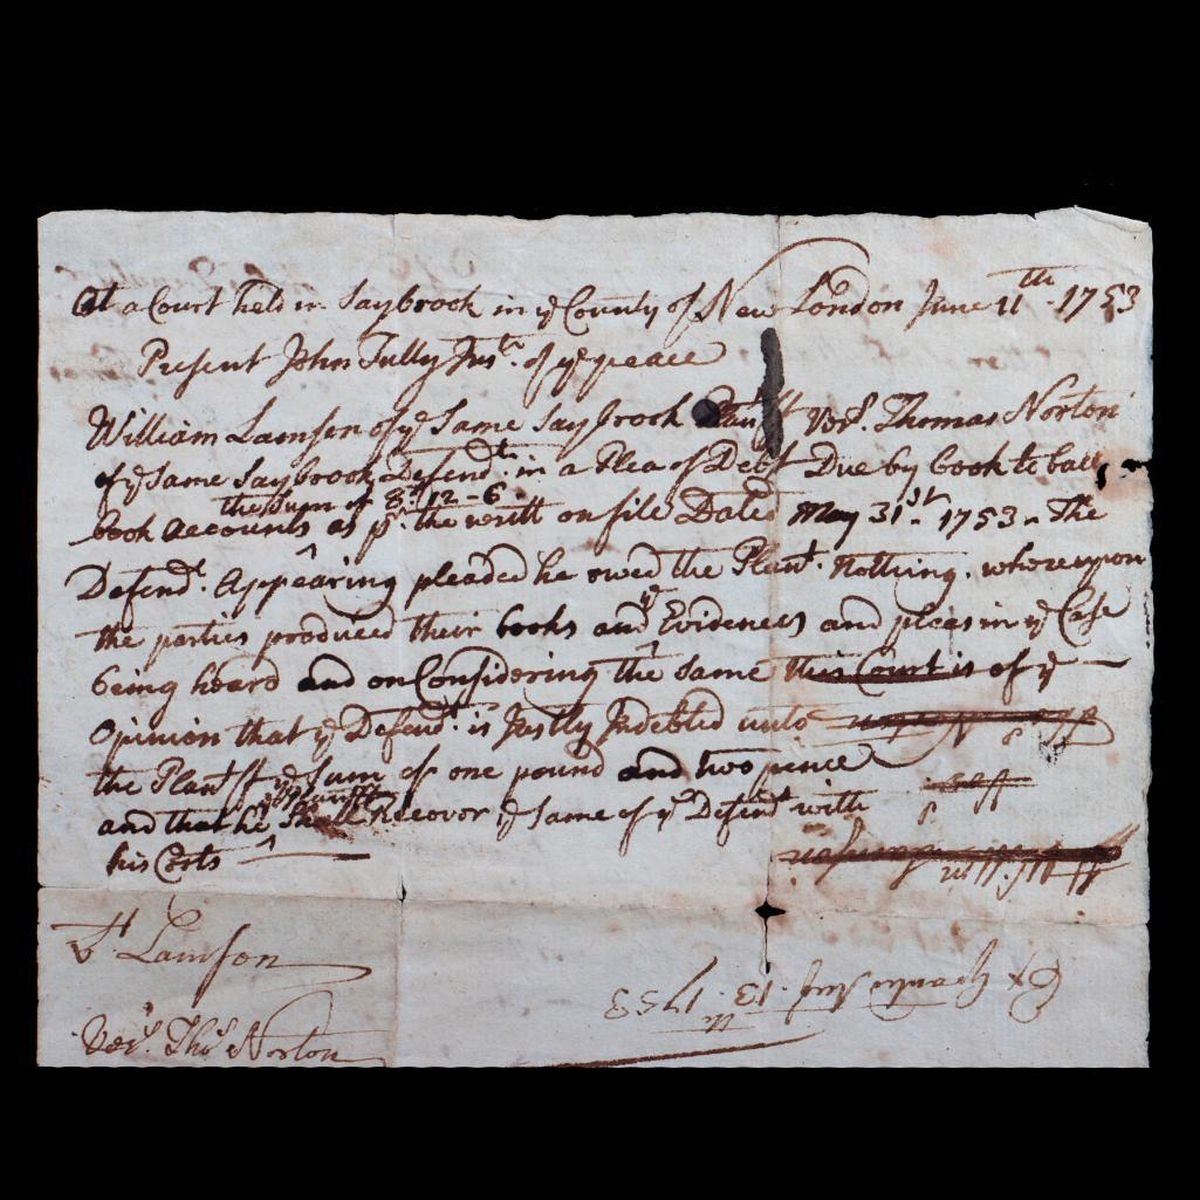 At a Court held in Saybrook in ye County of New London June 11th - 1753
Present John Tully Just. of ye peace
William Lamson of ye Same Saybrook Plantff Vers. Thomas Norton
of ye Same Saybrook Defendt. in a Plea of Debt Due by book to ball
the Sum of 8 - 12 - 6
book accounts as pr. the writt on file Dated May 31st. 1753. The
Defendt. Appearing pleaded he owed the Plant. Nothing. whereupon
the parties produced their books and ye Evidences and pleas in ye Case
being heard and on Considering the same this Court is of ye
Opinion that ye Defendt. is Justly Indebted unto
the Plantff ye Sum of one pound and two pence
ye Plantff
and that he Shall Recover ye same of ye Defendt with
his Costs
Lamson
Vers. Thos Norton
Ex 13th 1753